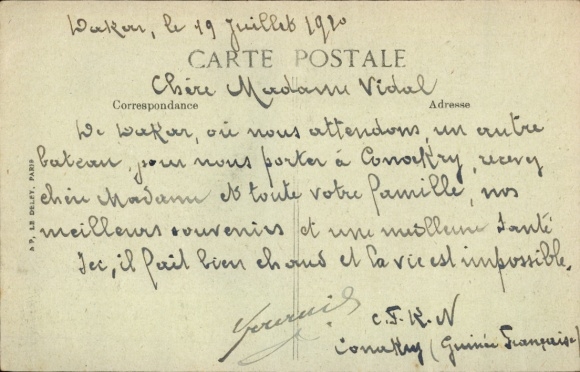 Dakar, le 19 Juillet 1920
CARTE POSTALE
Chère Madame Vidal
Correspondance Adresse
De Dakar, où nous attendons, un autre
bateau, pour nous porter à Conakry, recevez
chère Madame et toute votre famille, nos
meilleurs souvenirs et une meilleure santé
Ici, il fait bien chaud et la vie est impossible.
C.F.K.N
Conakry (Guinée Française)
AP, LE DELEY, PARIS